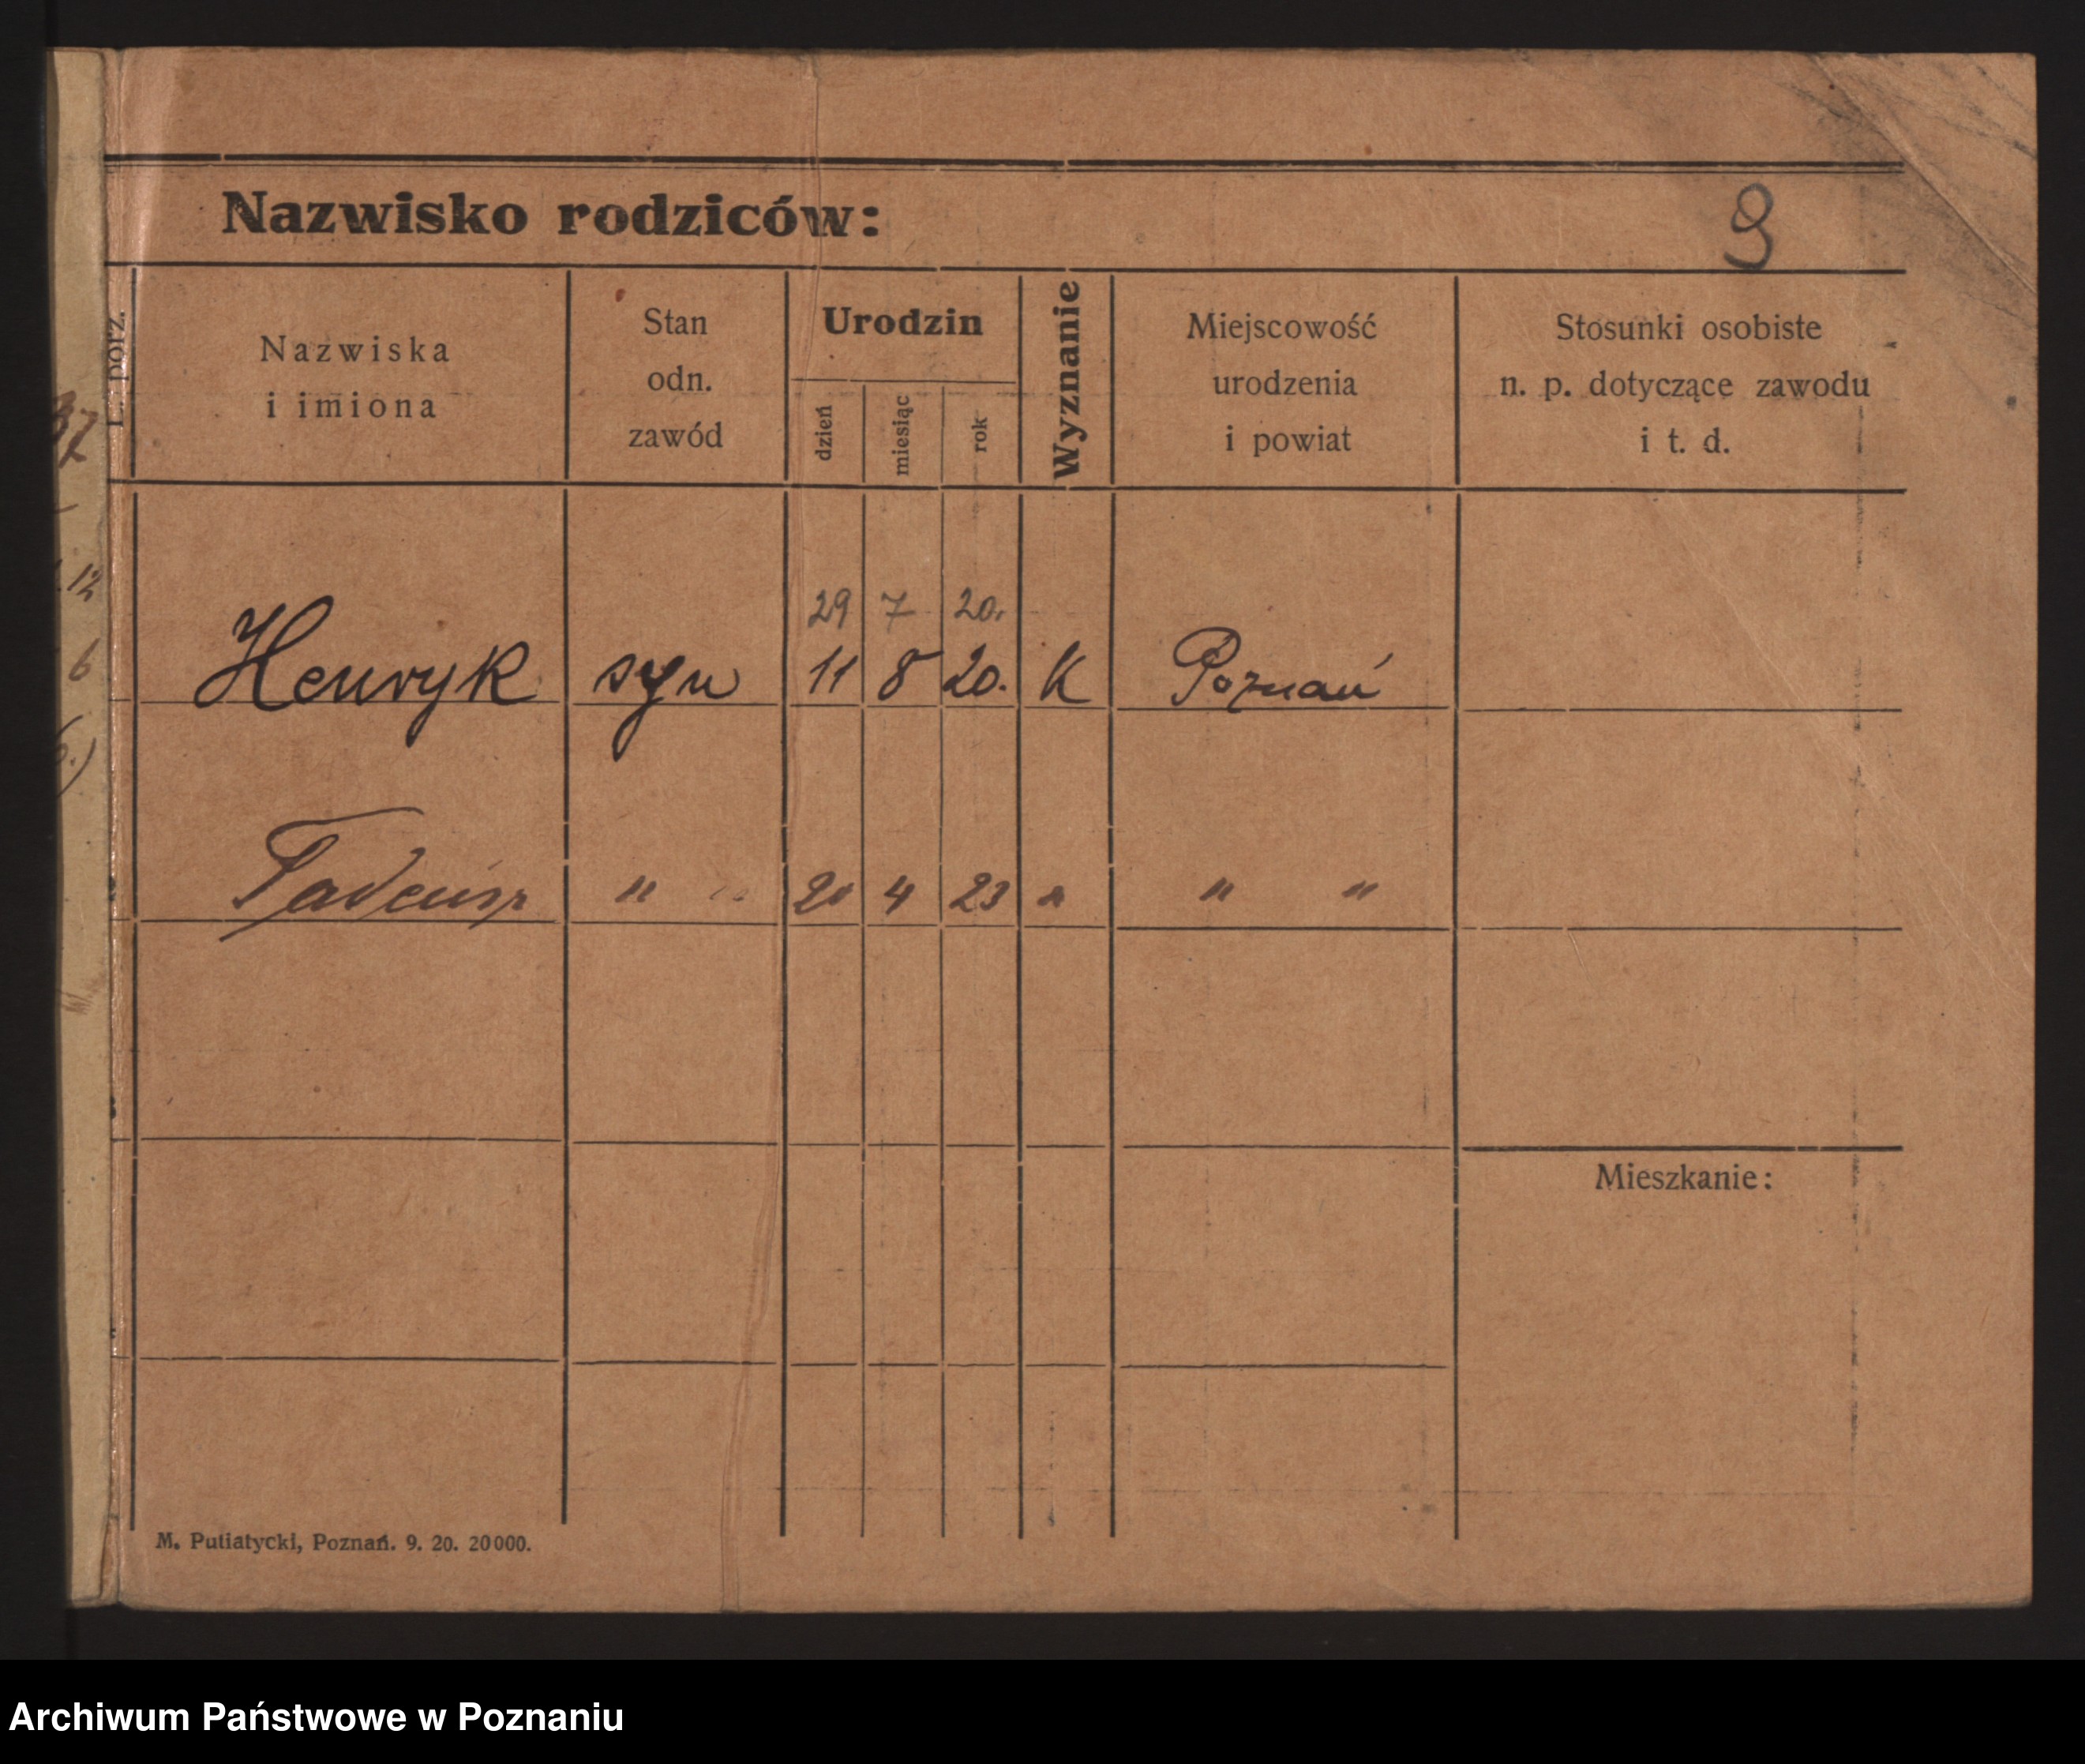 Nazwisko rodziców:
9
L. porz.
Nazwiska
i imiona
Stan
odn.
zawód
Urodzin
dzień
miesiąc
rok
Wyznanie
Miejscowość
urodzenia
i powiat
Stosunki osobiste
n. p. dotyczące zawodu
i t. d.
37
12
6
29 7 20.
Henryk syn 11 8 20. K Poznań
Tadeusz " " 4 23 " " "
Mieszkanie:
M. Putiatycki, Poznań. 9. 20. 20000.
Archiwum Państwowe w Poznaniu